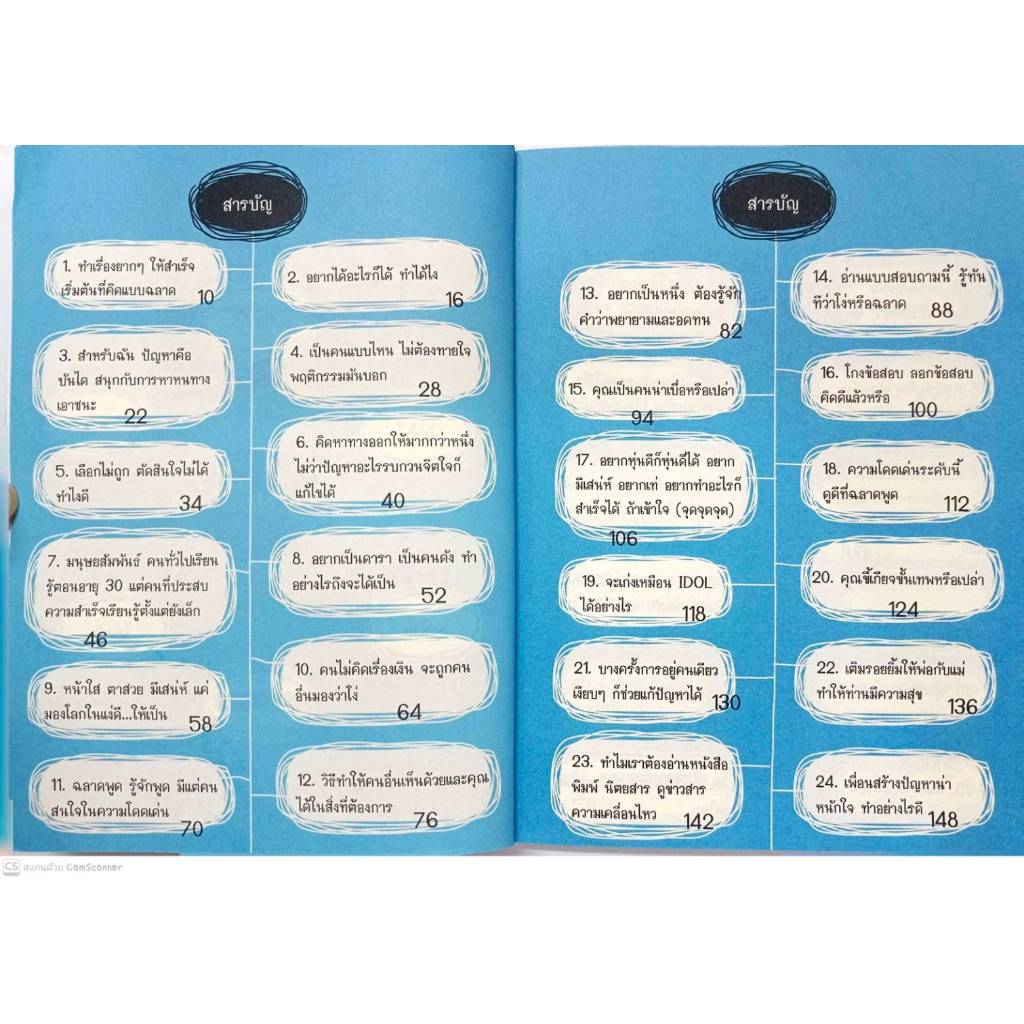 สารบัญ
1. ทำเรื่องยากๆ ให้สำเร็จ
เริ่มต้นที่คิดแบบฉลาด 10
2. อยากได้อะไรก็ได้ ทำได้ไง
16
3. สำหรับฉัน ปัญหาคือ
บันได สนุกกับการหาหนทาง
เอาชนะ 22
4. เป็นคนแบบไหน ไม่ต้องทายใจ
พฤติกรรมมันบอก
28
5. เลือกไม่ถูก ตัดสินใจไม่ได้
ทำไงดี 34
6. คิดหาทางออกให้มากกว่าหนึ่ง
ไม่ว่าปัญหาอะไรรบกวนจิตใจก็
แก้ไขได้ 40
7. มนุษยสัมพันธ์ คนทั่วไปเรียน
รู้ตอนอายุ 30 แต่คนที่ประสบ
ความสำเร็จเรียนรู้ตั้งแต่ยังเล็ก
46
8. อยากเป็นดารา เป็นคนดัง ทำ
อย่างไรถึงจะได้เป็น
52
9. หน้าใส ตาสวย มีเสน่ห์ แค่
มองโลกในแง่ดี...ให้เป็น 58
10. คนไม่คิดเรื่องเงิน จะถูกคน
อื่นมองว่าโง่
64
11. ฉลาดพูด รู้จักพูด มีแต่คน
สนใจในความโดดเด่น
70
12. วิธีทำให้คนอื่นเห็นด้วยและคุณ
ได้ในสิ่งที่ต้องการ
76
สารบัญ
13. อยากเป็นหนึ่ง ต้องรู้จัก
คำว่าพยายามและอดทน
82
14. อ่านแบบสอบถามนี้ รู้ทัน
ทีว่าโง่หรือฉลาด 88
15. คุณเป็นคนน่าเบื่อหรือเปล่า
94
16. โกงข้อสอบ ลอกข้อสอบ
คิดดีแล้วหรือ 100
17. อยากหุ่นดีก็หุ่นดีได้ อยาก
มีเสน่ห์ อยากเท่ อยากทำอะไรก็
สำเร็จได้ ถ้าเข้าใจ (จุดจุดจุด)
106
18. ความโดดเด่นระดับนี้
ดูดีที่ฉลาดพูด 112
19. จะเก่งเหมือน IDOL
ได้อย่างไร 118
20. คุณขี้เกียจขั้นเทพหรือเปล่า
124
21. บางครั้งการอยู่คนเดียว
เงียบๆ ก็ช่วยแก้ปัญหาได้ 130
22. เติมรอยยิ้มให้พ่อกับแม่
ทำให้ท่านมีความสุข 136
23. ทำไมเราต้องอ่านหนังสือ
พิมพ์ นิตยสาร ดูข่าวสาร
ความเคลื่อนไหว 142
24. เพื่อนสร้างปัญหาน่า
หนักใจ ทำอย่างไรดี 148
CS สแกนด้วย CamScanner